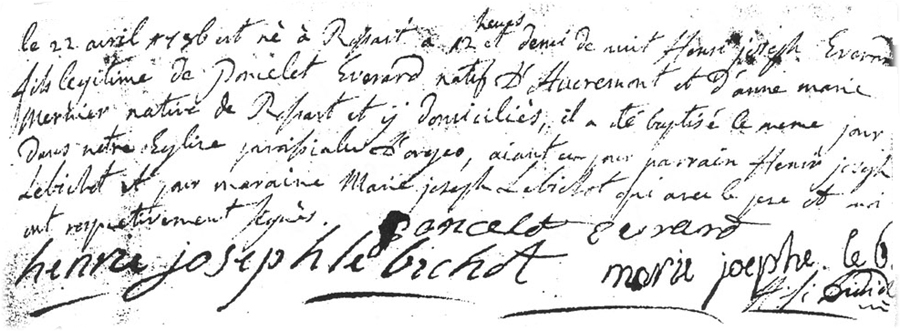 le 22 avril 1786 est né à Rossart à 12 heures et demi de nuit Henri joseph Everard
fils legitime de Poncelet Everard natif D'Auvremont et D'anne marie
Mernier native de Rossart et y domiciliés, il a été baptisé le meme jour
Dans notre Eglise paroissiale D'orgeo, aiant eu pour parrain Henri joseph
Lebichot et pour maraine Marie joseph Lebichot qui avec le pere et moi
ont respectivement signés.
poncelet everard
henri joseph le bichot
marie joephe le b